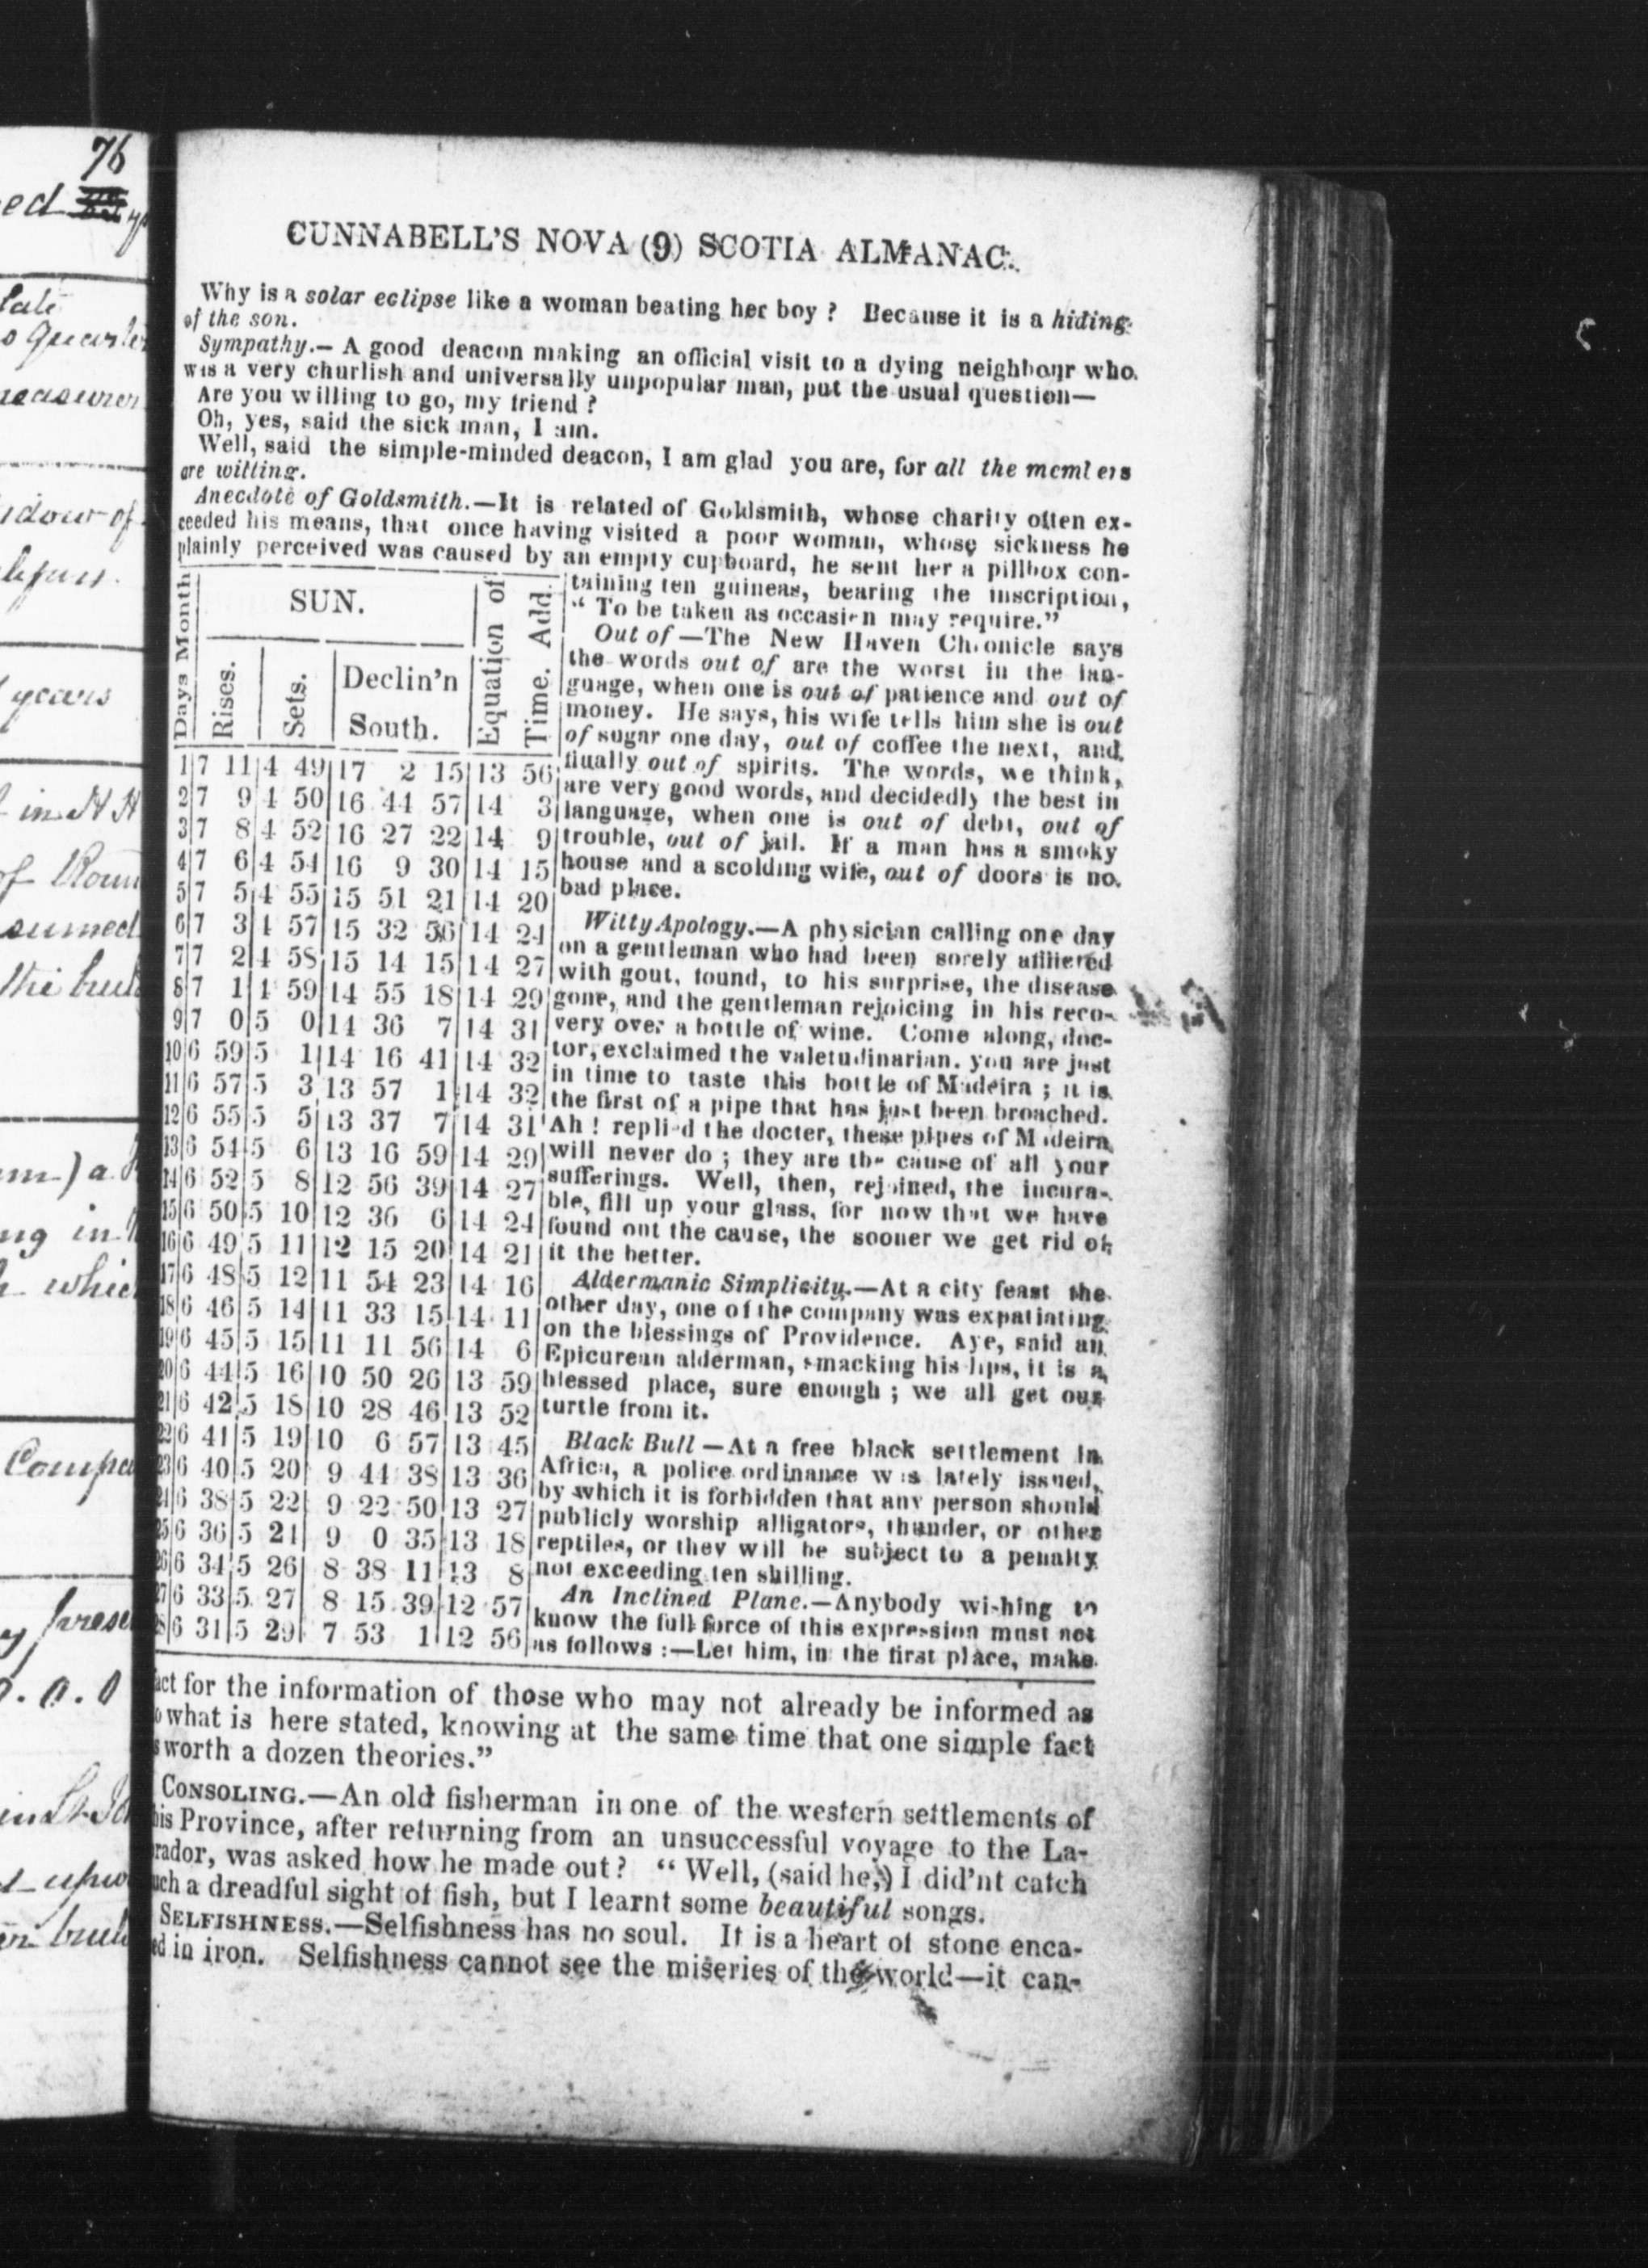 76
ed
late
years
in N H
sumed
the
which
in
CUNNABELL'S NOVA (9) SCOTIA ALMANAC.
Why is a solar eclipse like a woman beating her boy ? Because it is a hiding
of the son.
Sympathy.— A good deacon making an official visit to a dying neighbour who
was a very churlish and universally unpopular man, put the usual question—
Are you willing to go, my friend ?
Oh, yes, said the sick man, I am.
Well, said the simple-minded deacon, I am glad you are, for all the members
are willing.
Anecdote of Goldsmith.—It is related of Goldsmith, whose charity often ex-
ceeded his means, that once having visited a poor woman, whose sickness he
plainly perceived was caused by an empty cupboard, he sent her a pillbox con-
taining ten guineas, bearing the inscription,
“ To be taken as occasion may require.”
Out of —The New Haven Chronicle says
the words out of are the worst in the lan-
guage, when one is out of patience and out of
money. He says, his wife tells him she is out
of sugar one day, out of coffee the next, and
finally out of spirits. The words, we think,
are very good words, and decidedly the best in
language, when one is out of debt, out of
trouble, out of jail. If a man has a smoky
house and a scolding wife, out of doors is no
bad place.
Witty Apology.—A physician calling one day
on a gentleman who had been sorely afflicted
with gout, found, to his surprise, the disease
gone, and the gentleman rejoicing in his reco-
very over a bottle of wine. Come along, doc-
tor, exclaimed the valetudinarian. you are just
in time to taste this bottle of Madeira ; it is
the first of a pipe that has just been broached.
Ah ! replied the docter, these pipes of Madeira
will never do ; they are the cause of all your
sufferings. Well, then, rejoined, the incura-
ble, fill up your glass, for now that we have
found out the cause, the sooner we get rid of
it the better.
Aldermanic Simplicity.—At a city feast the
other day, one of the company was expatiating
on the blessings of Providence. Aye, said an
Epicurean alderman, smacking his lips, it is a
blessed place, sure enough ; we all get our
turtle from it.
Black Bull —At a free black settlement in
Africa, a police ordinance was lately issued,
by which it is forbidden that any person should
publicly worship alligators, thunder, or other
reptiles, or they will be subject to a penalty
not exceeding ten shilling.
An Inclined Plane.—Anybody wishing to
know the full force of this expression must act
as follows :—Let him, in the first place, make
Days Month
SUN.
Rises.
Sets.
Declin'n
South.
Equation of
Time. Add.
1 7 11 4 49 17 2 15 13 56
2 7 9 4 50 16 44 57 14 3
3 7 8 4 52 16 27 22 14 9
4 7 6 4 54 16 9 30 14 15
5 7 5 4 55 15 51 21 14 20
6 7 3 4 57 15 32 56 14 24
7 7 2 4 58 15 14 15 14 27
8 7 1 4 59 14 55 18 14 29
9 7 0 5 0 14 36 7 14 31
10 6 59 5 1 14 16 41 14 32
11 6 57 5 3 13 57 1 14 32
12 6 55 5 5 13 37 7 14 31
13 6 54 5 6 13 16 59 14 29
14 6 52 5 8 12 56 39 14 27
15 6 50 5 10 12 36 6 14 24
16 6 49 5 11 12 15 20 14 21
17 6 48 5 12 11 54 23 14 16
18 6 46 5 14 11 33 15 14 11
19 6 45 5 15 11 11 56 14 6
20 6 44 5 16 10 50 26 13 59
21 6 42 5 18 10 28 46 13 52
22 6 41 5 19 10 6 57 13 45
23 6 40 5 20 9 44 38 13 36
24 6 38 5 22 9 22 50 13 27
25 6 36 5 24 9 0 35 13 18
26 6 34 5 26 8 38 11 13 8
27 6 33 5 27 8 15 39 12 57
28 6 31 5 29 7 53 1 12 56
act for the information of those who may not already be informed as
o what is here stated, knowing at the same time that one simple fact
s worth a dozen theories.”
CONSOLING.—An old fisherman in one of the western settlements of
his Province, after returning from an unsuccessful voyage to the La-
rador, was asked how he made out ? “ Well, (said he,) I did'nt catch
uch a dreadful sight of fish, but I learnt some beautiful songs.
SELFISHNESS.—Selfishness has no soul. It is a heart of stone enca-
ed in iron. Selfishness cannot see the miseries of the world—it can-